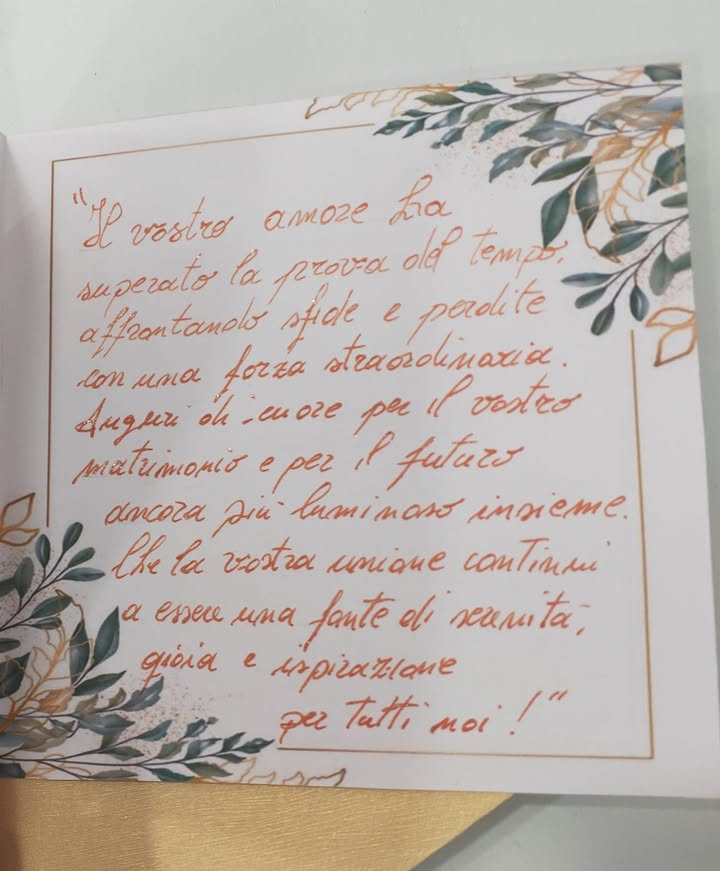 "Il vostro amore ha
superato la prova del tempo,
affrontando sfide e perdite
con una forza straordinaria.
Auguri di cuore per il vostro
matrimonio e per il futuro
ancora più luminoso insieme.
Che la vostra unione continui
a essere una fonte di serenità,
gioia e ispirazione
per tutti noi!"